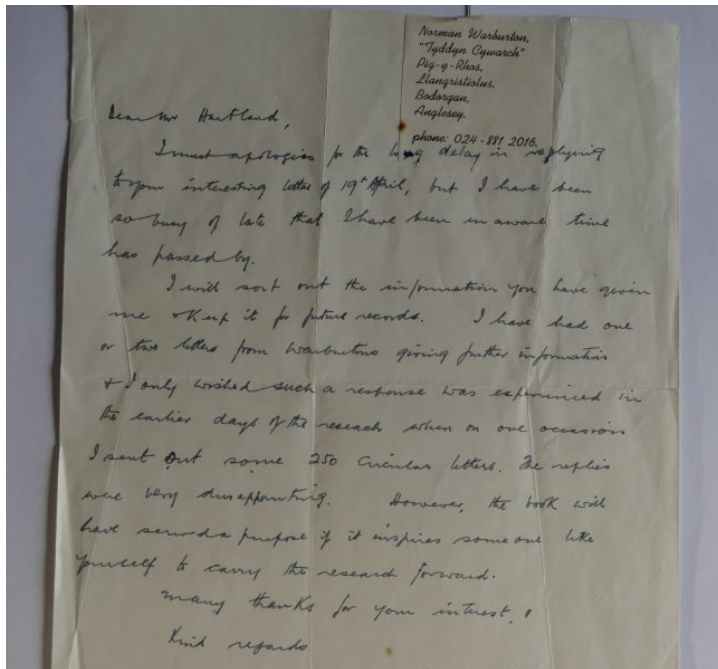 Norman Warburton,
"Tyddyn Cywarch"
Pig-y-Rhos,
Llangristiolus,
Bodorgan,
Anglesey.
phone: 024-881 2016.
Dear Mr Hartland,
I must apologise for the long delay in replying
to your interesting letter of 19th April, but I have been
so busy of late that I have been unaware time
has passed by.
I will sort out the information you have given
me & keep it for future records. I have had one
or two letters from Warburtons giving further information
& I only wished such a response was experienced in
the earlier days of the research when on one occasion
I sent out some 250 circular letters. The replies
were very disappointing. However, the book will
have served a purpose if it inspires someone like
yourself to carry the research forward.
Many thanks for your interest.
Kind regards